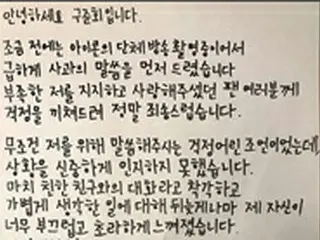 안녕하세요 구준회입니다.
조금 전에는 아이콘의 단체 방송 촬영중이어서
급하게 사과의 말씀을 먼저 드렸습니다
부족한 저를 지지하고 사랑해주셨던 팬 여러분께
걱정을 끼쳐드려 정말 죄송스럽습니다.
무조건 저를 위해 말씀해주시는 걱정어린 조언이었는데,
상황을 신중하게 인지하지 못했습니다.
마치 친한 친구와의 대화라고 착각하고
가볍게 생각한 일에 대해 뒤늦게나마 제 자신이
너무 부끄럽고 초라하게 느껴졌습니다.